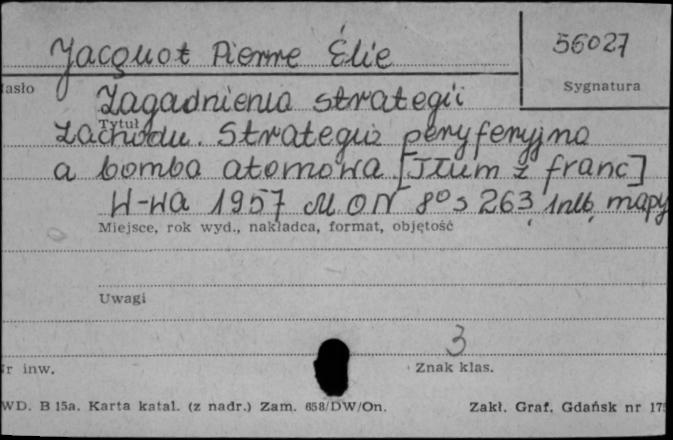 Jacquot Pierre Élie
56027
asło
Sygnatura
Zagadnienia strategii
Tytuł
zachodu. Strategia peryferyjna
a bomba atomowa [Tłum z franc]
W-wa 1957 MON 8° s 263, 1nlb, mapy
Miejsce, rok wyd., nakładca, format, objętość
Uwagi
3
r inw.
Znak klas.
WD. B 15a. Karta katal. (z nadr.) Zam. 658/DW/On.
Zakł. Graf. Gdańsk nr 175